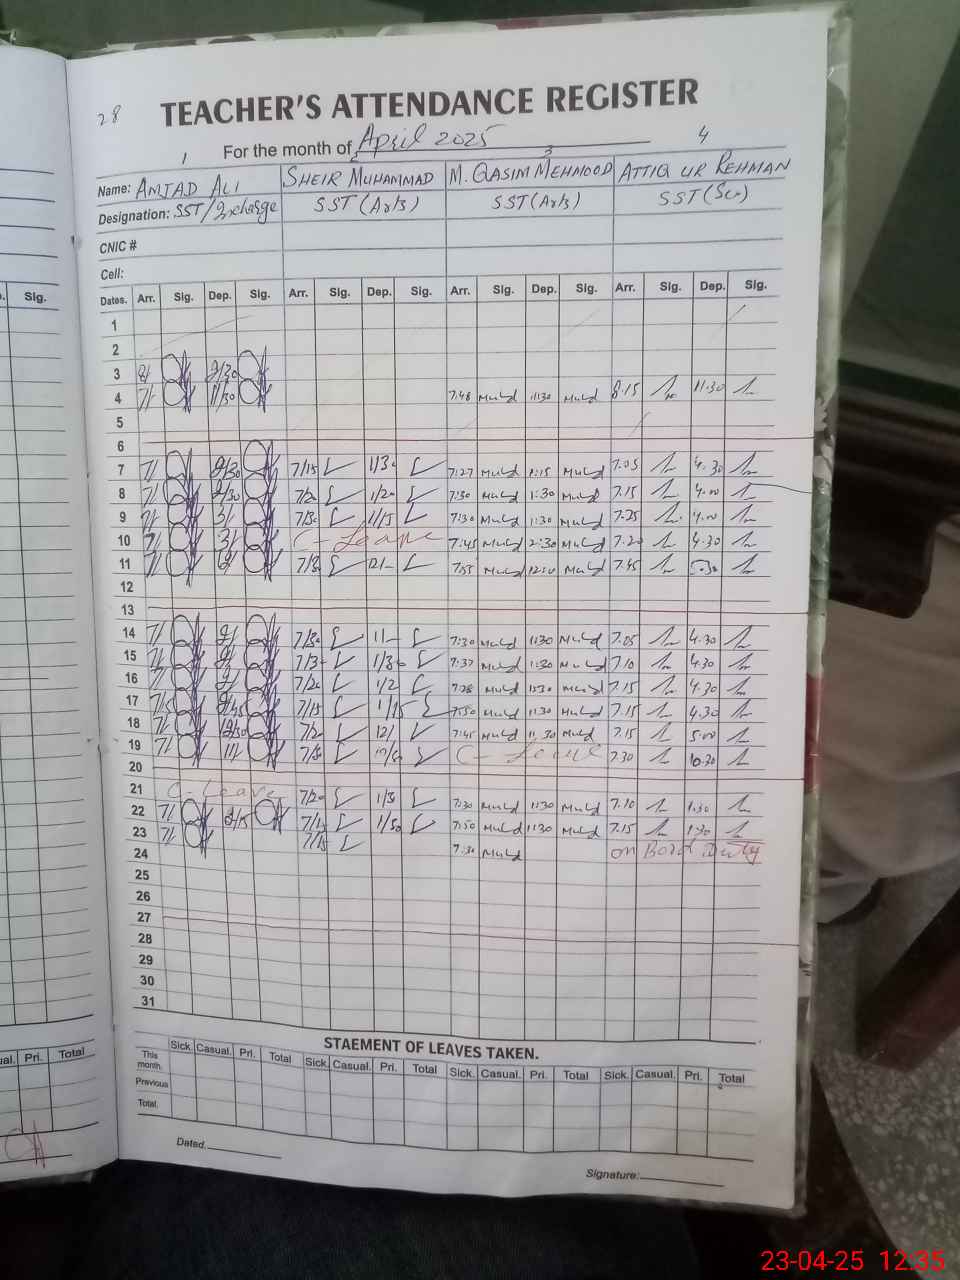 28
TEACHER'S ATTENDANCE REGISTER
For the month of April 2025
1 2 3 4
Name: AMJAD ALI SHEIR MUHAMMAD M. QASIM MEHMOOD ATTIQ UR REHMAN
Designation: SST/Incharge SST (Arts) SST (Arts) SST (Sci)
CNIC #
Cell:
Sig. Dates. Arr. Sig. Dep. Sig. Arr. Sig. Dep. Sig. Arr. Sig. Dep. Sig. Arr. Sig. Dep. Sig.
1
2
3 8/ 2/30
4 7/ 11/30 7:48 11:30 8.15 11.30
5
6
7 7/ 2/30 7/15 1/30 7:27 1:15 7.05 4.30
8 7/ 2/30 7/20 1/20 7:30 1:30 7.15 4.00
9 7/ 3/ 7/30 1/15 7:30 1:30 7.25 4.00
10 7/ 3/ C-Leave 7:45 2:30 7.20 4.30
11 7/ 7/30 12/- 7:55 12:10 7.45 5.30
12
13
14 7/ 2/ 7/30 11- 7:30 1:30 7.05 4.30
15 7/ 2/ 7/3 1/30 7:37 1:30 7.10 4.30
16 7/ 2/ 7/20 1/2 7:28 1:30 7.15 4.30
17 7/15 2/45 7/15 1/15 7:50 11:30 7.15 4.30
18 7/ 12/30 7/2 12/ 7:45 11,30 7.15 5.00
19 7/ 11/ 7/50 10/50 C-Leave 7.30 10.30
20
21 C-Leave 7/20 1/30 7:30 1:30 7.10 1.30
22 7/ 2/15 7/15 1/50 7:50 1:30 7.15 1:30
23 7/ 7/15 7:30 on Bord Duty
24
25
26
27
28
29
30
31
STAEMENT OF LEAVES TAKEN.
Casual. Pri. Total Sick. Casual. Pri. Total Sick. Casual. Pri. Total Sick. Casual. Pri. Total Sick. Casual. Pri. Total
This month.
Previous
Total.
Dated.
Signature:
23-04-25 12:35